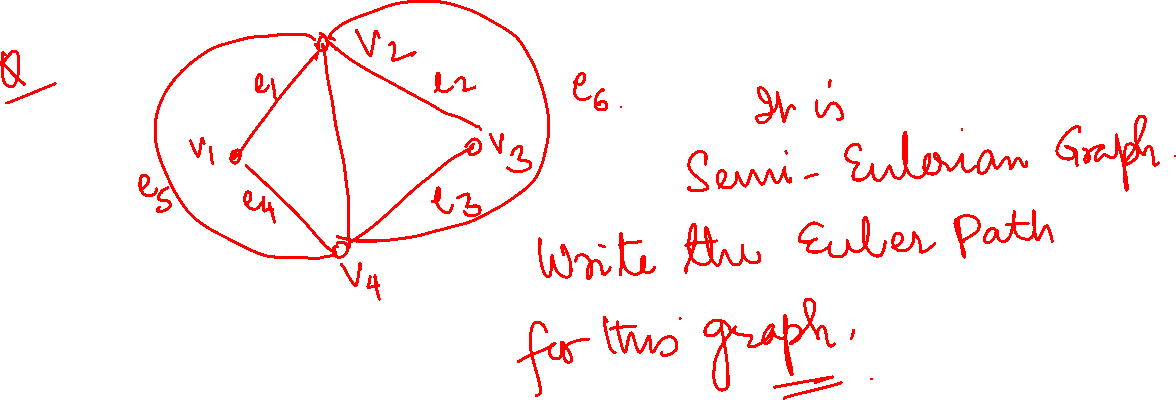 Q
V2
e1
e2
e6.
V1
V3
e5
e4
e3
V4
It is
Semi-Eulerian Graph.
Write the Euler Path
for this graph.